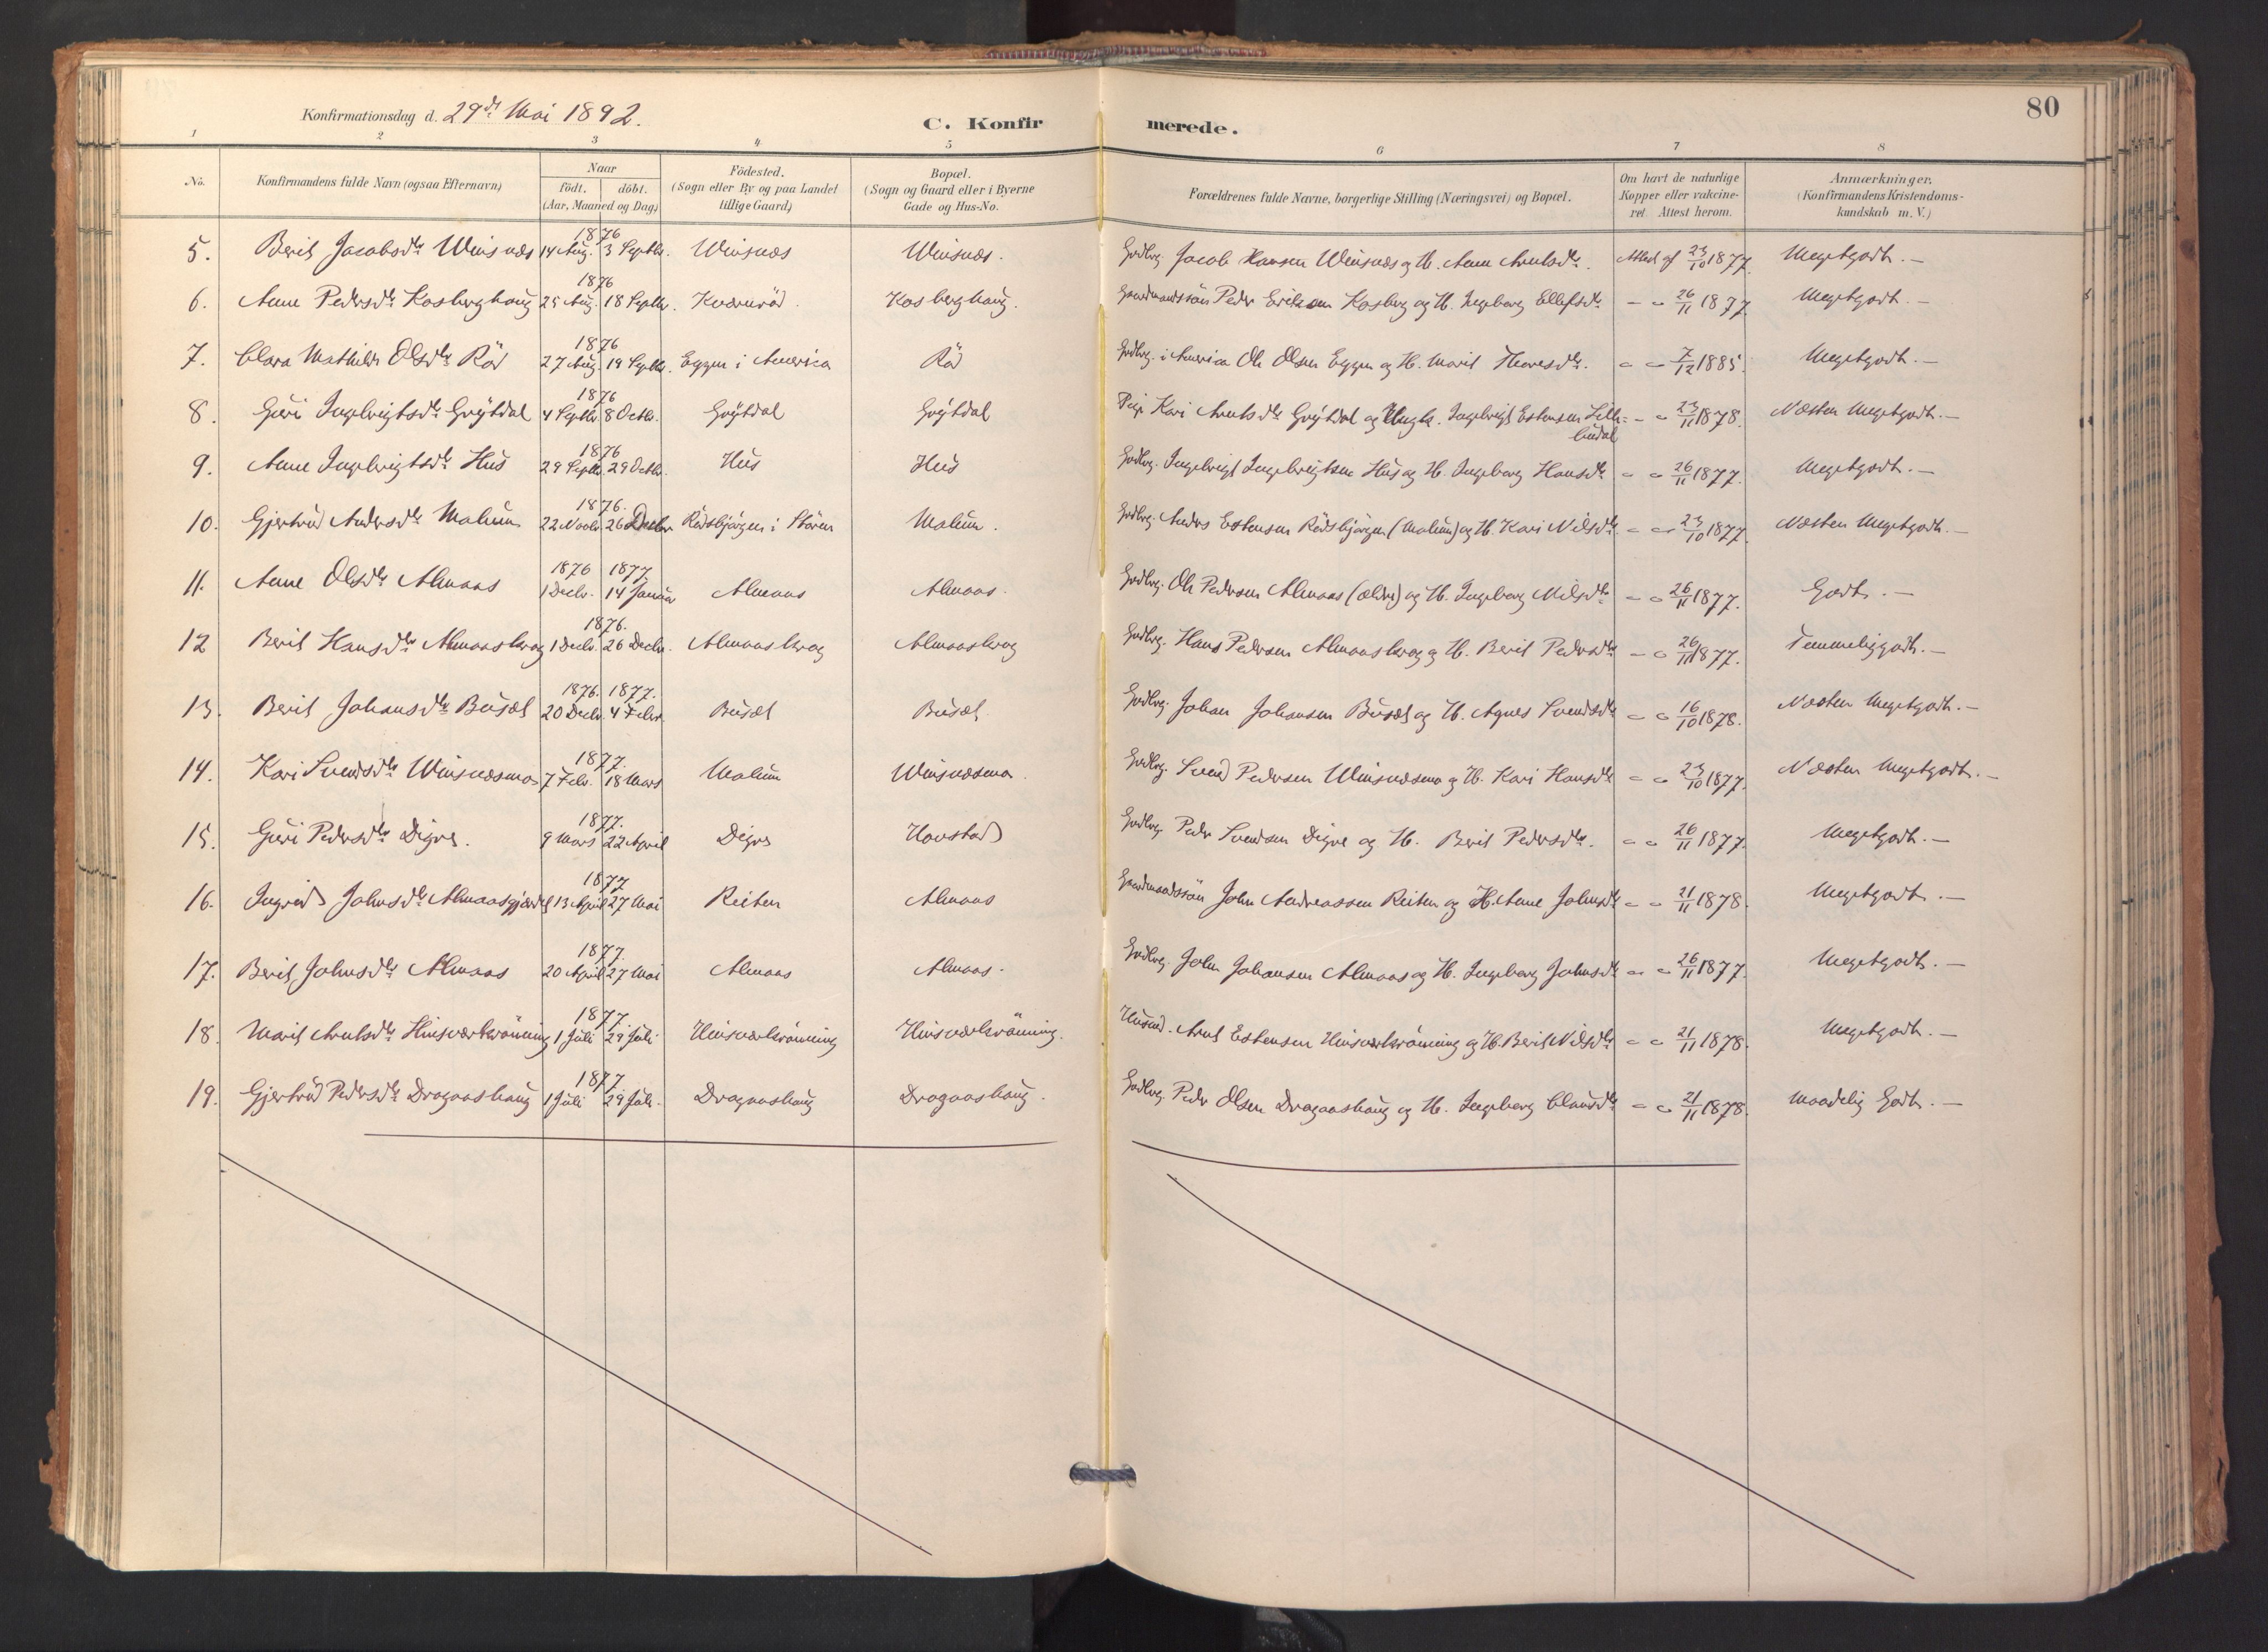 80
Konfirmationsdag d. 29de Mai 1892.
C. Konfirmerede.
1 2 3 4 5 6 7 8
No. Konfirmandens fulde Navn (ogsaa Efternavn) Naar födt. döbt. (Aar, Maaned og Dag.) Födested. (Sogn eller By og paa Landet tillige Gaard) Bopæl. (Sogn og Gaard eller i Byerne Gade og Hus-No. Forældrenes fulde Navne, borgerlige Stilling (Næringsvei) og Bopæl. Om havt de naturlige Kopper eller vakcineret. Attest herom. Anmærkninger. (Konfirmandens Kristendomskundskab m. V.)
1876
5. Berit Jacobsdtr Winsnæs 14 Aug. 3 Septbr. Winsnæs Winsnæs. Gdbrg. Jacob Hansen Winsnæs og H. Anne Arntsdtr. Attest af 23/10 1877. Megetgodt. —
1876
6. Anne Pedersdtr Kosberghaug 25 Aug. 18 Septbr. Kværnröd. Kosberghaug. Gaardmandssön Peder Eriksen Kosberg og H. Ingeborg Ellefsdtr - " 26/11 1877 Megetgodt. —
1876
7. Clara Mathilde Olsdtr Röd 27 Aug. 19 Septbr. Eggen i America Röd Gdbrg. i America Ole Olsen Eggen og H. Marit Thoresdtr. " " 7/12 1885. Megetgodt. —
1876
8. Guri Ingebrigtsdtr Gröÿtdal 4 Septbr. 8 Octbr. Gröÿtdal Gröÿtdal Pige Kari Arntsdtr Gröÿtdal og Ungk. Ingebrigt Estensen Lille= - " 23/11 1878. Næsten Megetgodt. —
budal
1876
9. Anne Ingebrigtsdtr Hus 29 Septbr. 29 Octbr. Hus Hus Gdbrg. Ingebrigt Ingebrigtsen Hus og H. Ingeborg Hansdtr " " 26/11 1877. Megetgodt. —
1876.
10. Gjertrud Andersdtr Malum 22 Novbr 26 Decbr Rödsbjörgen i Stören Malum. Gdbrg. Anders Estensen Rödsbjörgen (Malum) og H. Kari Nilsdtr. - " 23/10 1877. Næsten Megetgodt. —
1876 1877
11. Anne Olsdtr Almaas 1 Decbr. 14 Januar Almaas Almaas. Gdbrg. Ole Pedersen Almaas (ældre) og H. Ingeborg Nilsdtr - " 26/11 1877. Godt. —
1876.
12 Berit Hansdtr Almaaskrog 1 Decbr. 26 Decbr. Almaaskrog Almaaskrog Gdbrg. Hans Pedersen Almaaskrog og H. Berit Pedersdtr - " 26/11 1877. Temmeliggodt. —
1876. 1877.
13. Berit Johansdtr Busæt 20 Decbr. 4 Febr. Busæt Busæt. Gdbrg. Johan Johansen Busæt og H. Agnes Svendsdtr " " 16/10 1878. Næsten Megetgodt. —
1877.
14. Kari Svendsdtr Winsnæsmo 7 Febr. 18 Mars Malum Winsnæsmo. Gdbrg. Svend Pedersen Winsnæsmo og H. Kari Hansdtr " " 23/10 1877. Næsten Megetgodt. —
1877.
15. Guri Pedersdtr Digre. 9 Mars 22 April Digre Hovstad Gdbrg. Peder Svendsen Digre og H. Berit Pedersdtr. " " 26/11 1877. Megetgodt. —
1877
16. Ingrid Johnsdtr Almaasgjærdet 13 April 27 Mai Reiten Almaas Gaardmandssön John Andreassen Reiten og H. Anne Johnsdtr " " 21/11 1878. Megetgodt. —
1877.
17. Berit Johnsdtr Almaas 20 April 27 Mai Almaas Almaas. Gdbrg. John Johansen Almaas og H. Ingeborg Johnsdtr " " 26/11 1877. Megetgodt. —
1877
18. Marit Arntsdtr Hinsværkrönning 1 Juli 29 Juli Hinsværkrönning Hinsværkrönning. Husmd. Arnt Estensen Hinsværkrönning og H. Berit Nilsdtr " " 21/11 1878. Megetgodt. —
1877
19. Gjertrud Pedersdtr Dragaashaug 1 Juli 29 Juli. Dragaashaug Dragaashaug. Gdbrg. Peder Olsen Dragaashaug og H. Ingeborg Clausdtr " " 21/11 1878. Maadelig Godt. —